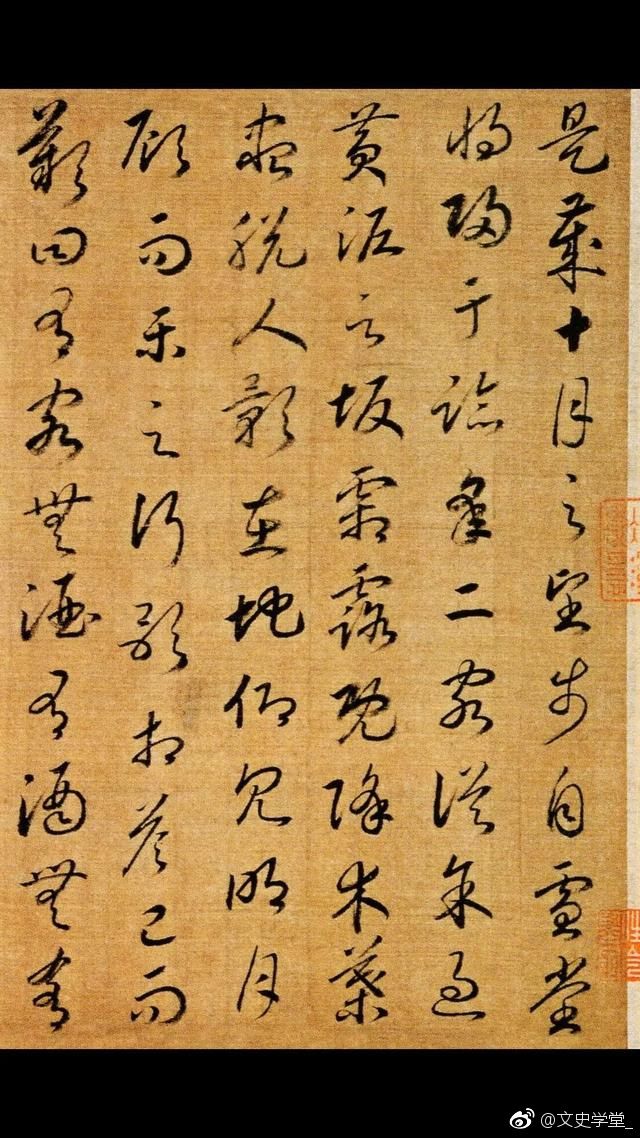 是歲十月之望步自雪堂
將歸于臨皋二客從余過
黃泥之坂霜露既降木葉
盡脫人影在地仰見明月
顧而樂之行歌相答已而
歎曰有客無酒有酒無肴
@文史学堂_